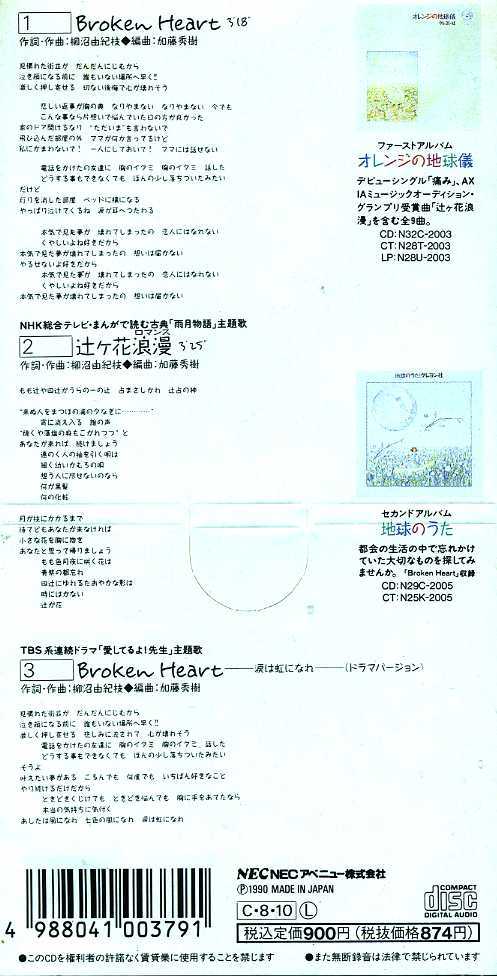 1 Broken Heart 3'18"
作詞・作曲：柳沼由紀枝◆編曲：加藤秀樹
見慣れた街並が だんだんにじむから
泣き顔になる前に 誰もいない場所へ早く!!
激しく押し寄せる 切ない後悔で心が壊れそう
悲しい返事が胸の奥 なりやまない なりやまない 今でも
こんな事なら片想いで悩んでいた日の方が良かった
家のドア開けるなり "ただいま"も言わないで
飛び込んだ部屋の外 ママが何か言ってるけど
私にかまわないで！ 一人にしておいて！ ママには話せない
電話をかけた友達に 胸のイタミ 胸のイタミ 話した
どうする事もできなくても ほんの少し落ちついたみたい
だけど
灯りを消した部屋 ベッドに横になる
やっぱり泣けてくるね 涙が耳へつたわる
本気で見た夢が 壊れてしまったの 恋人にはなれない
くやしいよね好きだから
本気で見た夢が 壊れてしまったの 想いは届かない
やるせないよ好きだから
本気で見た夢が 壊れてしまったの 恋人にはなれない
くやしいよね好きだから
本気で見た夢が 壊れてしまったの 想いは届かない
オレンジの地球儀
ファーストアルバム
オレンジの地球儀
デビューシングル「痛み」、AX
IAミュージックオーディション・
グランプリ受賞曲「辻ヶ花浪
漫」を含む全9曲。
CD:N32C-2003
CT:N28T-2003
LP:N28U-2003
NHK総合テレビ・まんがで読む古典「雨月物語」主題歌
2 辻ヶ花浪漫 3'25"
ロマンス
作詞・作曲：柳沼由紀枝◆編曲：加藤秀樹
もも辻や四辻がうらの一の辻 占まさしかれ 辻占の神
"来ぬ人をまつほの浦の夕なぎに…………"
宵に消え入る 誰の声
"焼くや藻塩の身もこがれつつ" と
あなたが来れば 続けましょう
道のく人の袖を引く唄は
細く幼いかむろの唄
想う人に添せないのなら
何が黒髪
何の化粧
月が柱にかかるまで
待てどもあなたが来なければ
小さな花を胸に抱き
あなたと思って帰りましょう
もも色月夜に咲く花は
青紫の都忘れ
四辻にゆれるたおやかな形は
時にはかない
辻が花
地球のうた/クレヨン社
セカンドアルバム
地球のうた
都会の生活の中で忘れかけ
ていた大切なものを探してみ
ませんか。「Broken Heart」収録
CD:N29C-2005
CT:N25K-2005
TBS系連続ドラマ「愛してるよ！先生」主題歌
3 Broken Heart——涙は虹になれ——（ドラマバージョン）
作詞・作曲：柳沼由紀枝◆編曲：加藤秀樹
見慣れた街並が だんだんにじむから
泣き顔になる前に 誰もいない場所へ早く!!
激しく押し寄せる 悲しみに流されて 心が壊れそう
電話をかけた友達に 胸のイタミ 胸のイタミ 話した
どうする事もできなくても ほんの少し落ちついたみたい
そうよ
叶えたい夢がある ころんでも 何度でも いちばん好きなこと
やり続けるだけだから
ときどきくじけても ときどき悩んでも 胸に手をあてたなら
本当の気持ちに気付く
あしたは風になれ 七色の風になれ 涙は虹になれ
4 988041 003791
NEC NECアベニュー株式会社
Ⓟ1990 MADE IN JAPAN
C・8・10 Ⓛ
COMPACT
disc
DIGITAL AUDIO
税込定価900円（税抜価格874円）
●このCDを権利者の許諾なく賃貸業に使用することを禁じます
●また無断録音は法律で禁じられています